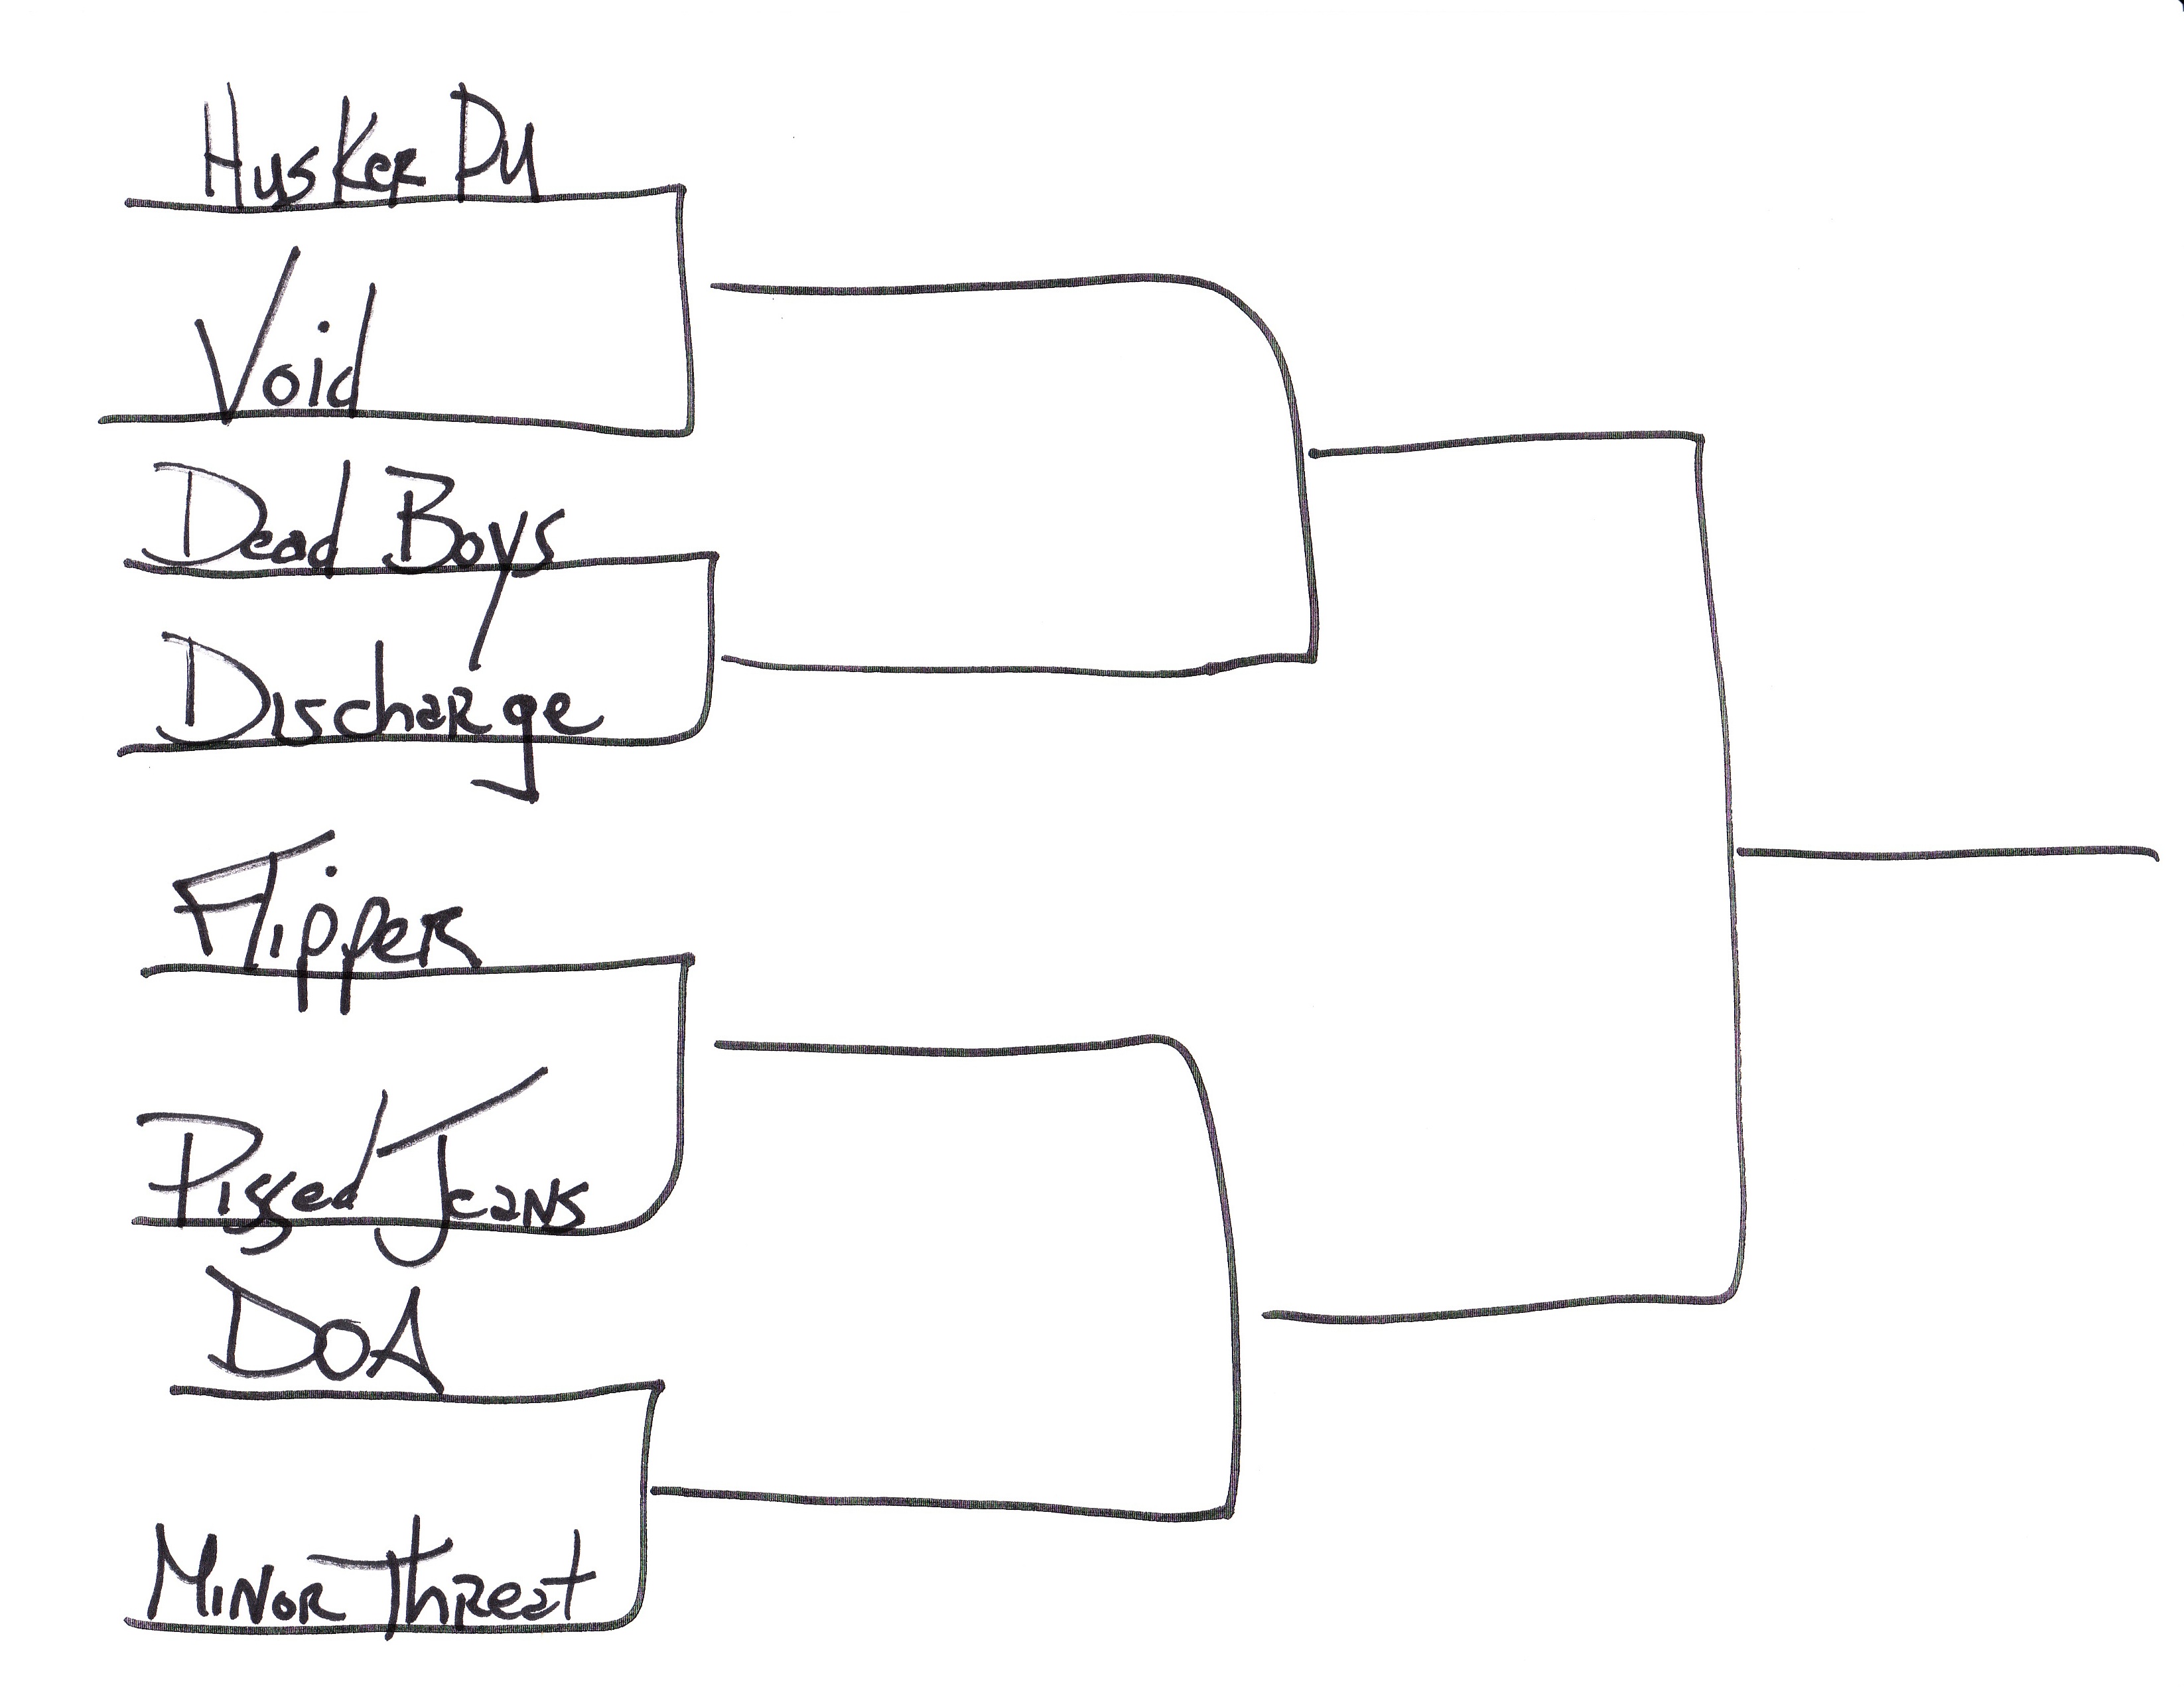 Husker Du
Void
Dead Boys
Discharge
Flipper
Pissed Jeans
DOA
Minor Threat